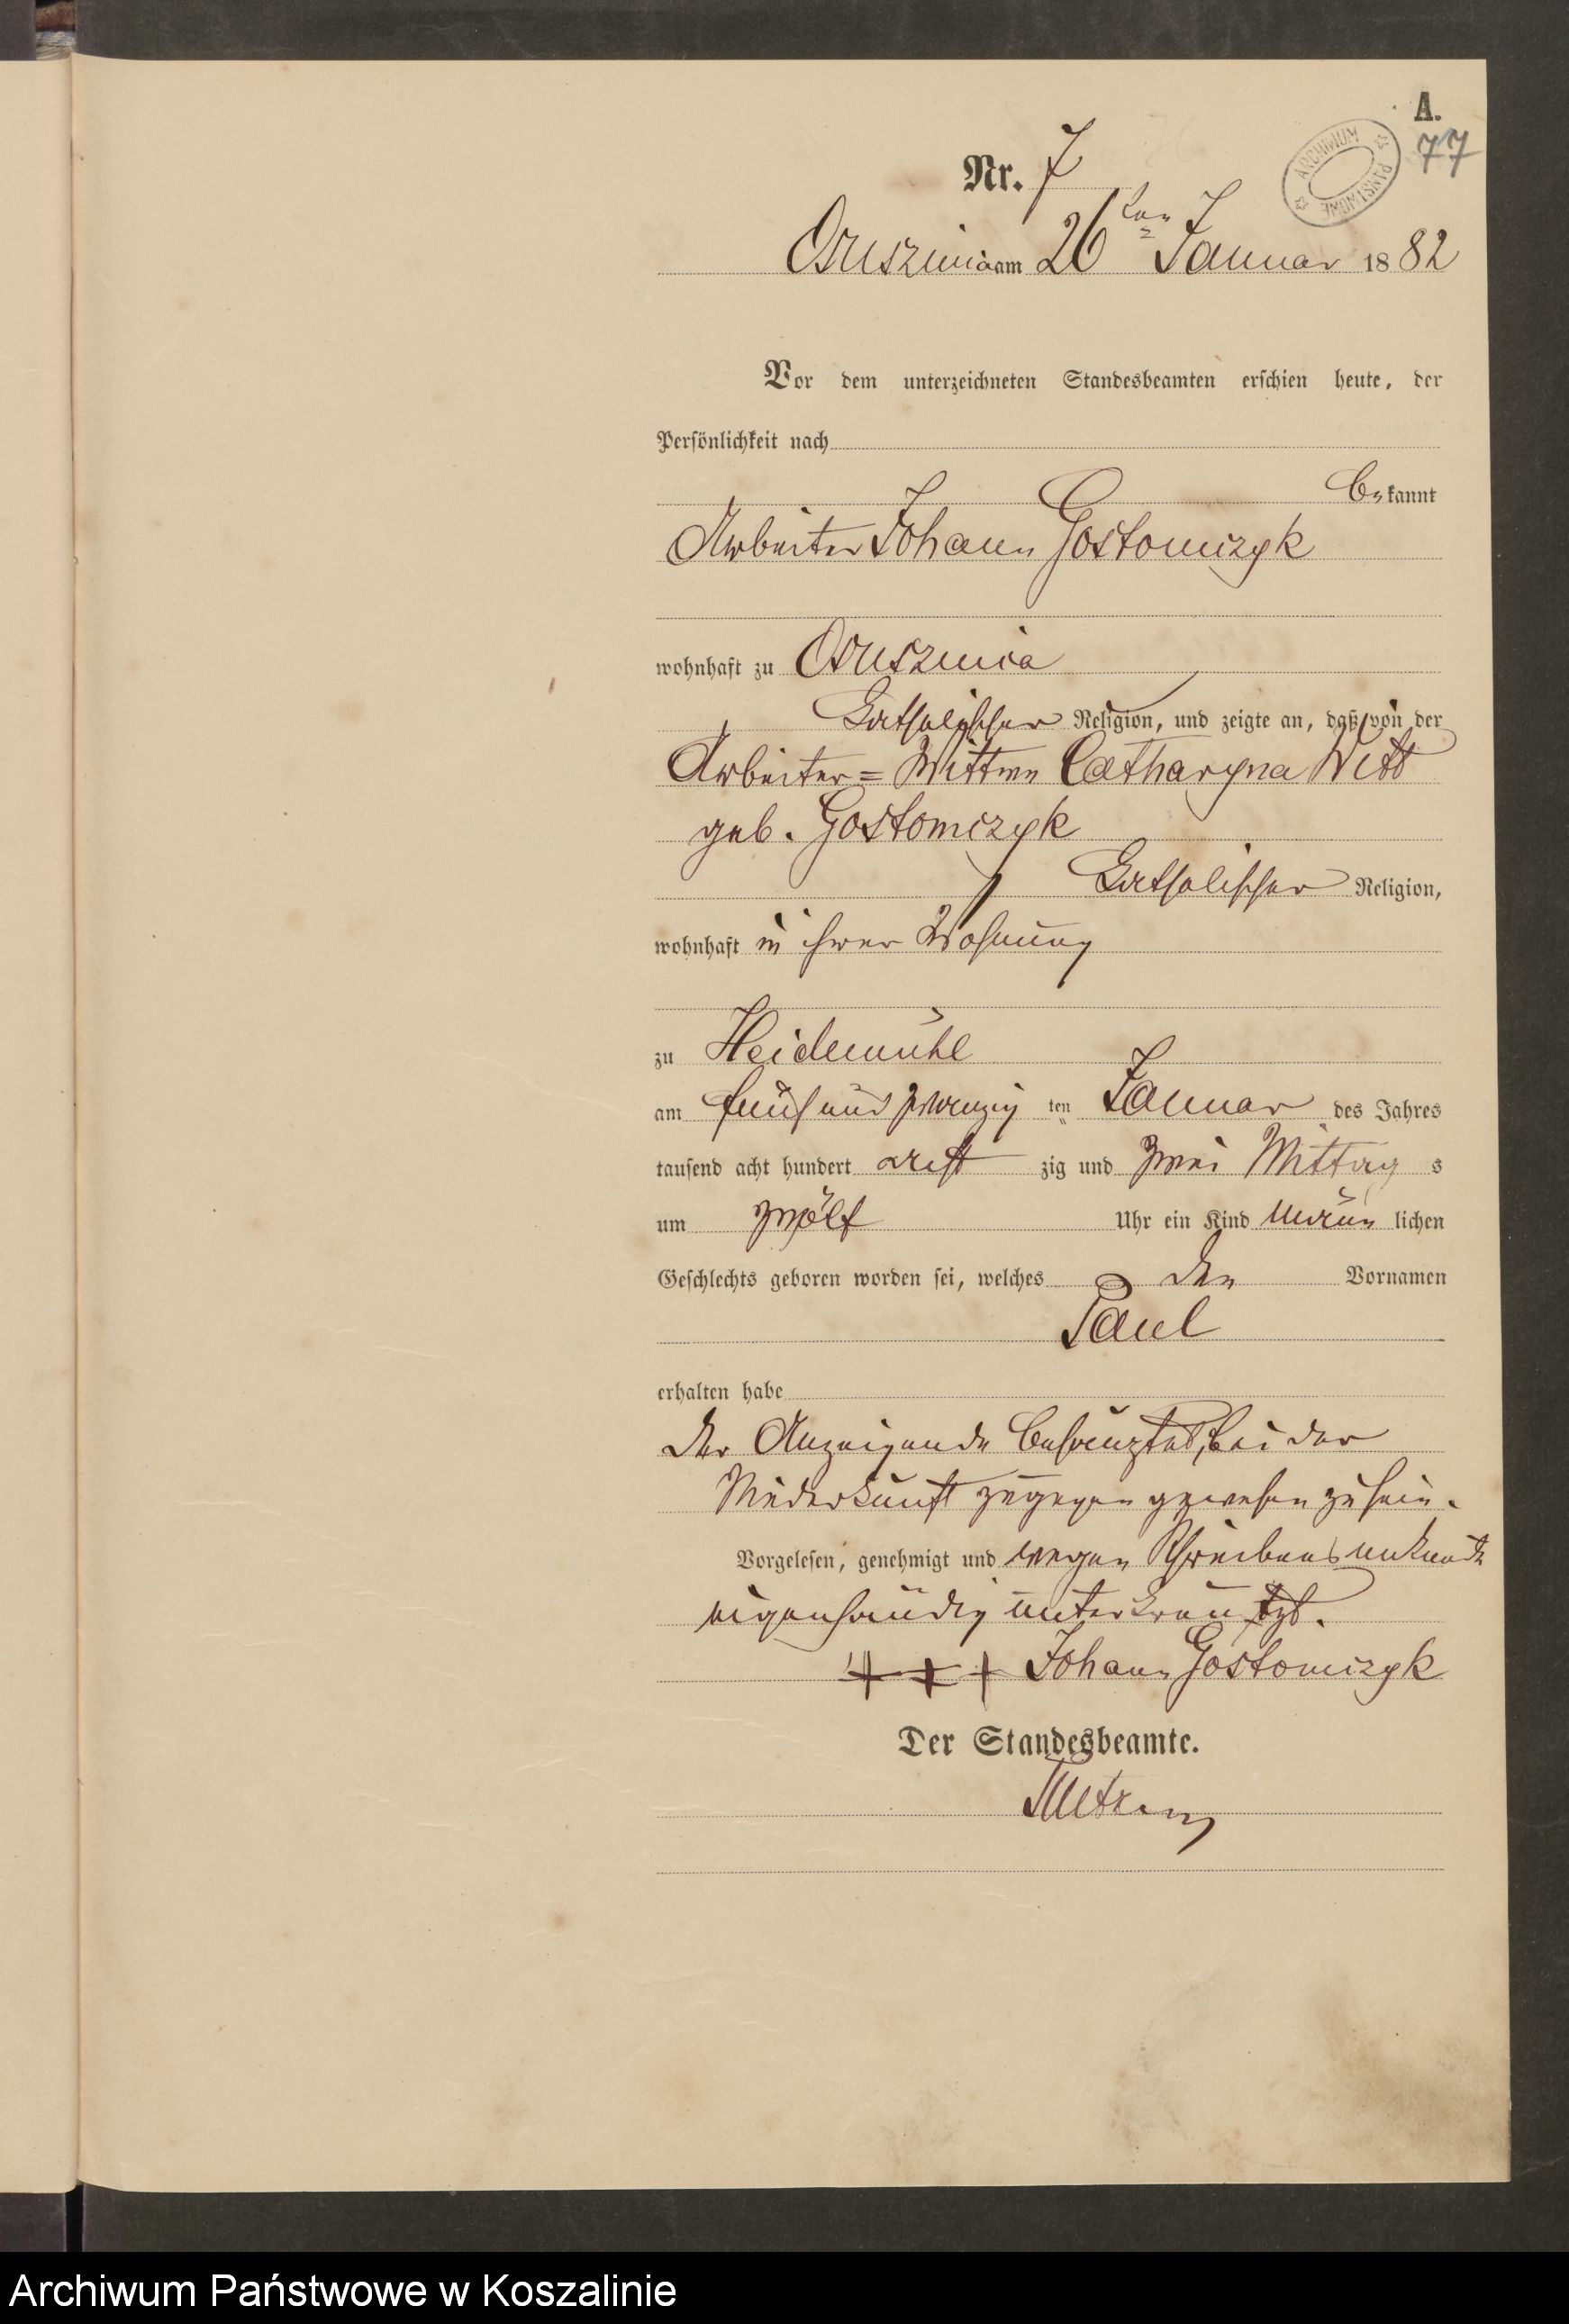 A.
77
ARCHIWUM PAŃSTWOWE
Nr. 7
Ossusznica am 26ten Januar 1882
Vor dem unterzeichneten Standesbeamten erschien heute, der
Persönlichkeit nach
bekannt
Arbeiter Johann Gostomczyk
wohnhaft zu Ossusznica
katholischer Religion, und zeigte an, daß von der
Arbeiter=Wittwe Catharyna Witt
geb. Gostomczyk
katholischer Religion,
wohnhaft in ihrer Wohnung
zu Heidemühl
am fünf und zwanzig ten Januar des Jahres
tausend acht hundert acht zig und zwei Mittag s
um zwölf Uhr ein Kind männ lichen
Geschlechts geboren worden sei, welches den Vornamen
Paul
erhalten habe
Der Anzeigende bekräuzte, bei der
Niederkunft zugegen gewesen zu sein.
Vorgelesen, genehmigt und wegen Schreibensunkunde
eigenhändig unterkreutzt.
+ + + Johann Gostomczyk
Der Standesbeamte.
Archiwum Państwowe w Koszalinie